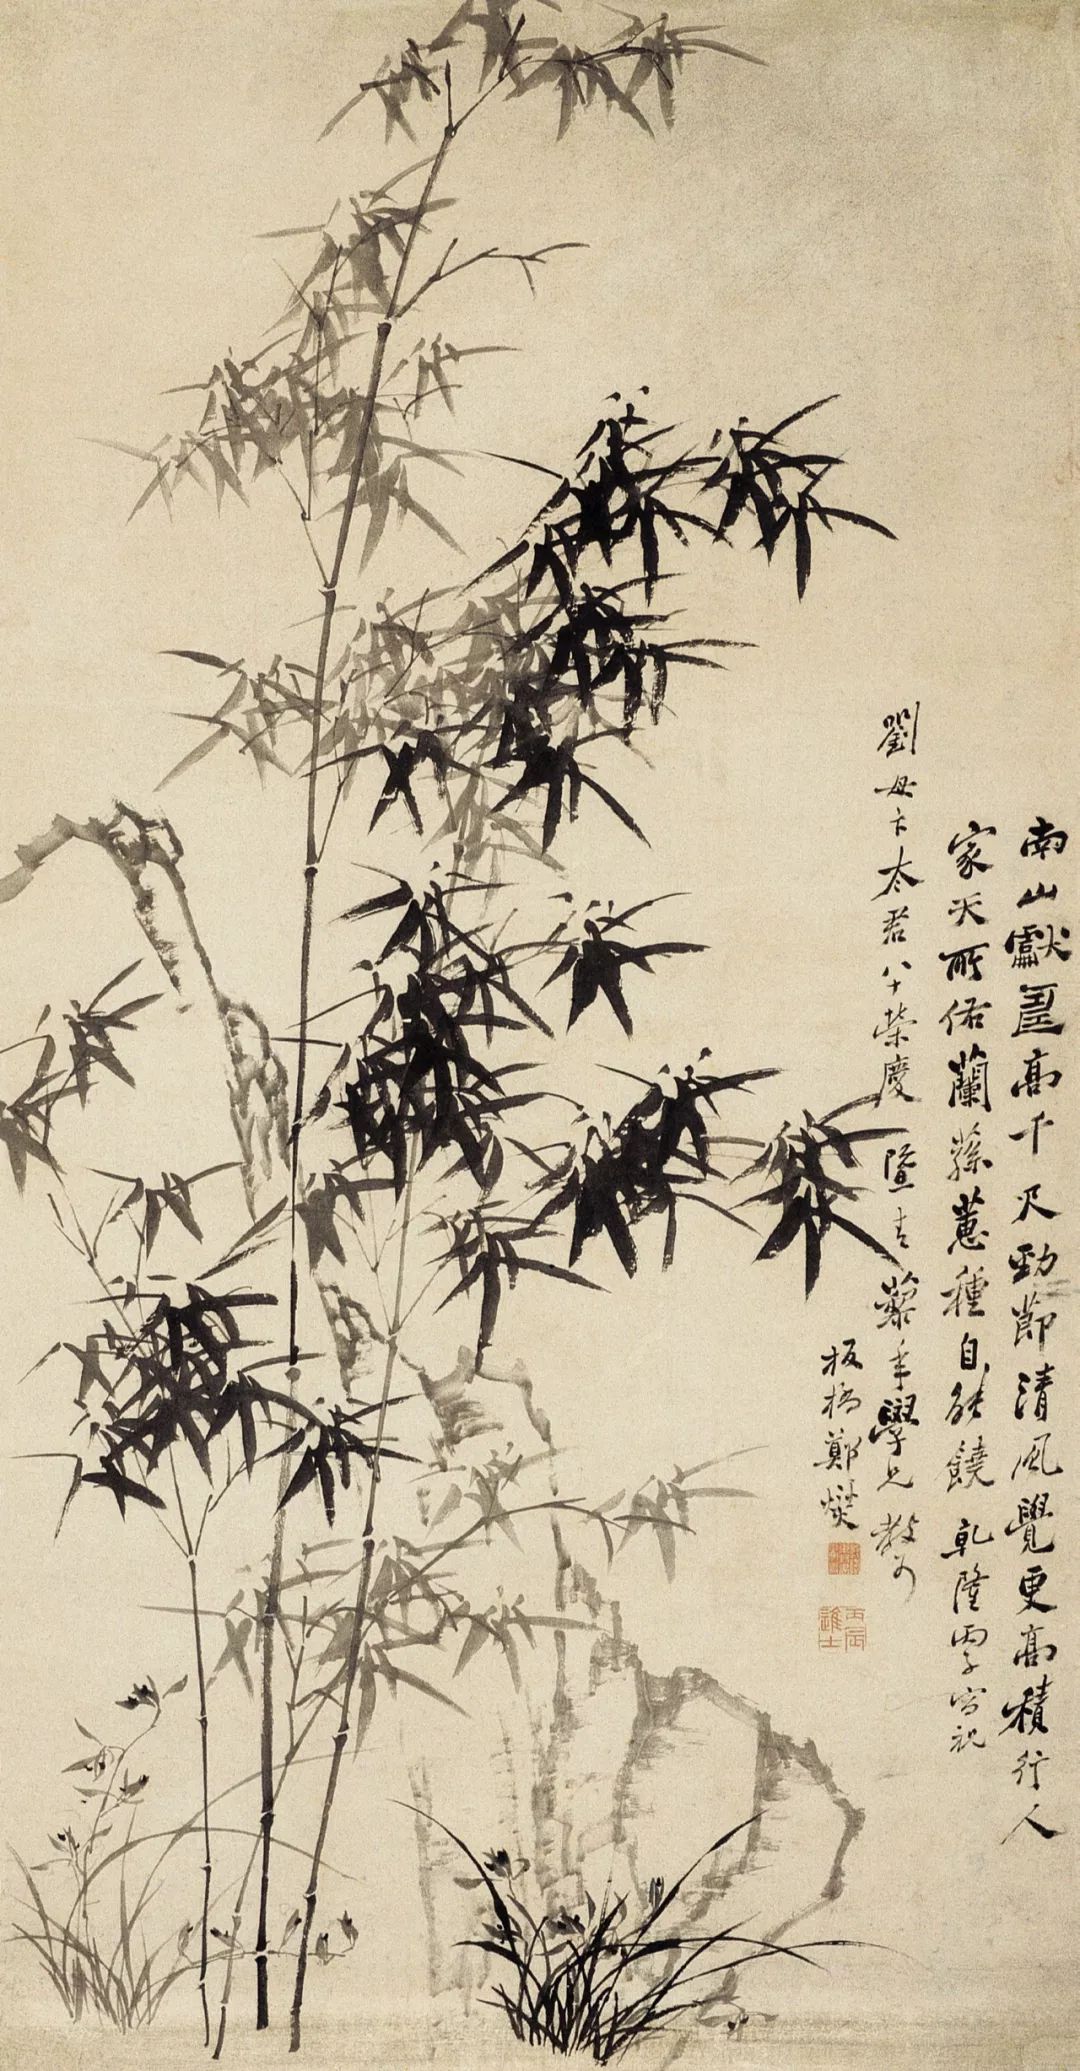 南山獻壽高千尺勁節清風覺更高積行人
家天所佑蘭蓀蕙種自能饒 乾隆 寫祝
劉母卞太君八十榮慶 暨青藜年學兄教可
板橋鄭燮
丙辰進士